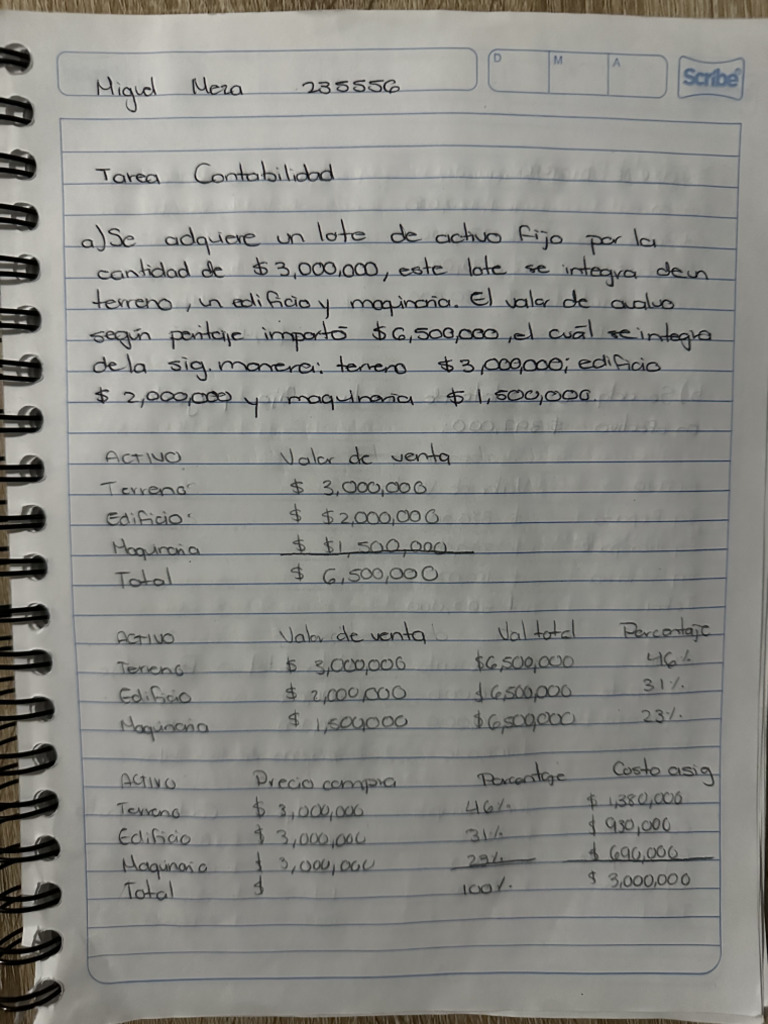 D M A
Scribe
Miguel Meza 235556
Tarea Contabilidad
a) Se adquiere un lote de activo fijo por la
cantidad de $3,000,000, este lote se integra de un
terreno, un edificio y maquinaria. El valor de avaluo
según peritaje importó $6,500,000, el cuál se integra
de la sig. manera: terreno $3,000,000; edificio
$2,000,000 y maquinaria $1,500,000.
ACTIVO Valor de venta
Terreno $ 3,000,000
Edificio $ $2,000,000
Maquinaria $ $1,500,000
Total $ 6,500,000
ACTIVO Valor de venta Val total Porcentaje
Terreno $ 3,000,000 $6,500,000 46%
Edificio $ 2,000,000 $6,500,000 31%
Maquinaria $ 1,500,000 $6,500,000 23%
ACTIVO Precio compra Porcentaje Costo asig
Terreno $ 3,000,000 46% $ 1,380,000
Edificio $ 3,000,000 31% $ 930,000
Maquinaria $ 3,000,000 23% $ 690,000
Total $ 100% $ 3,000,000